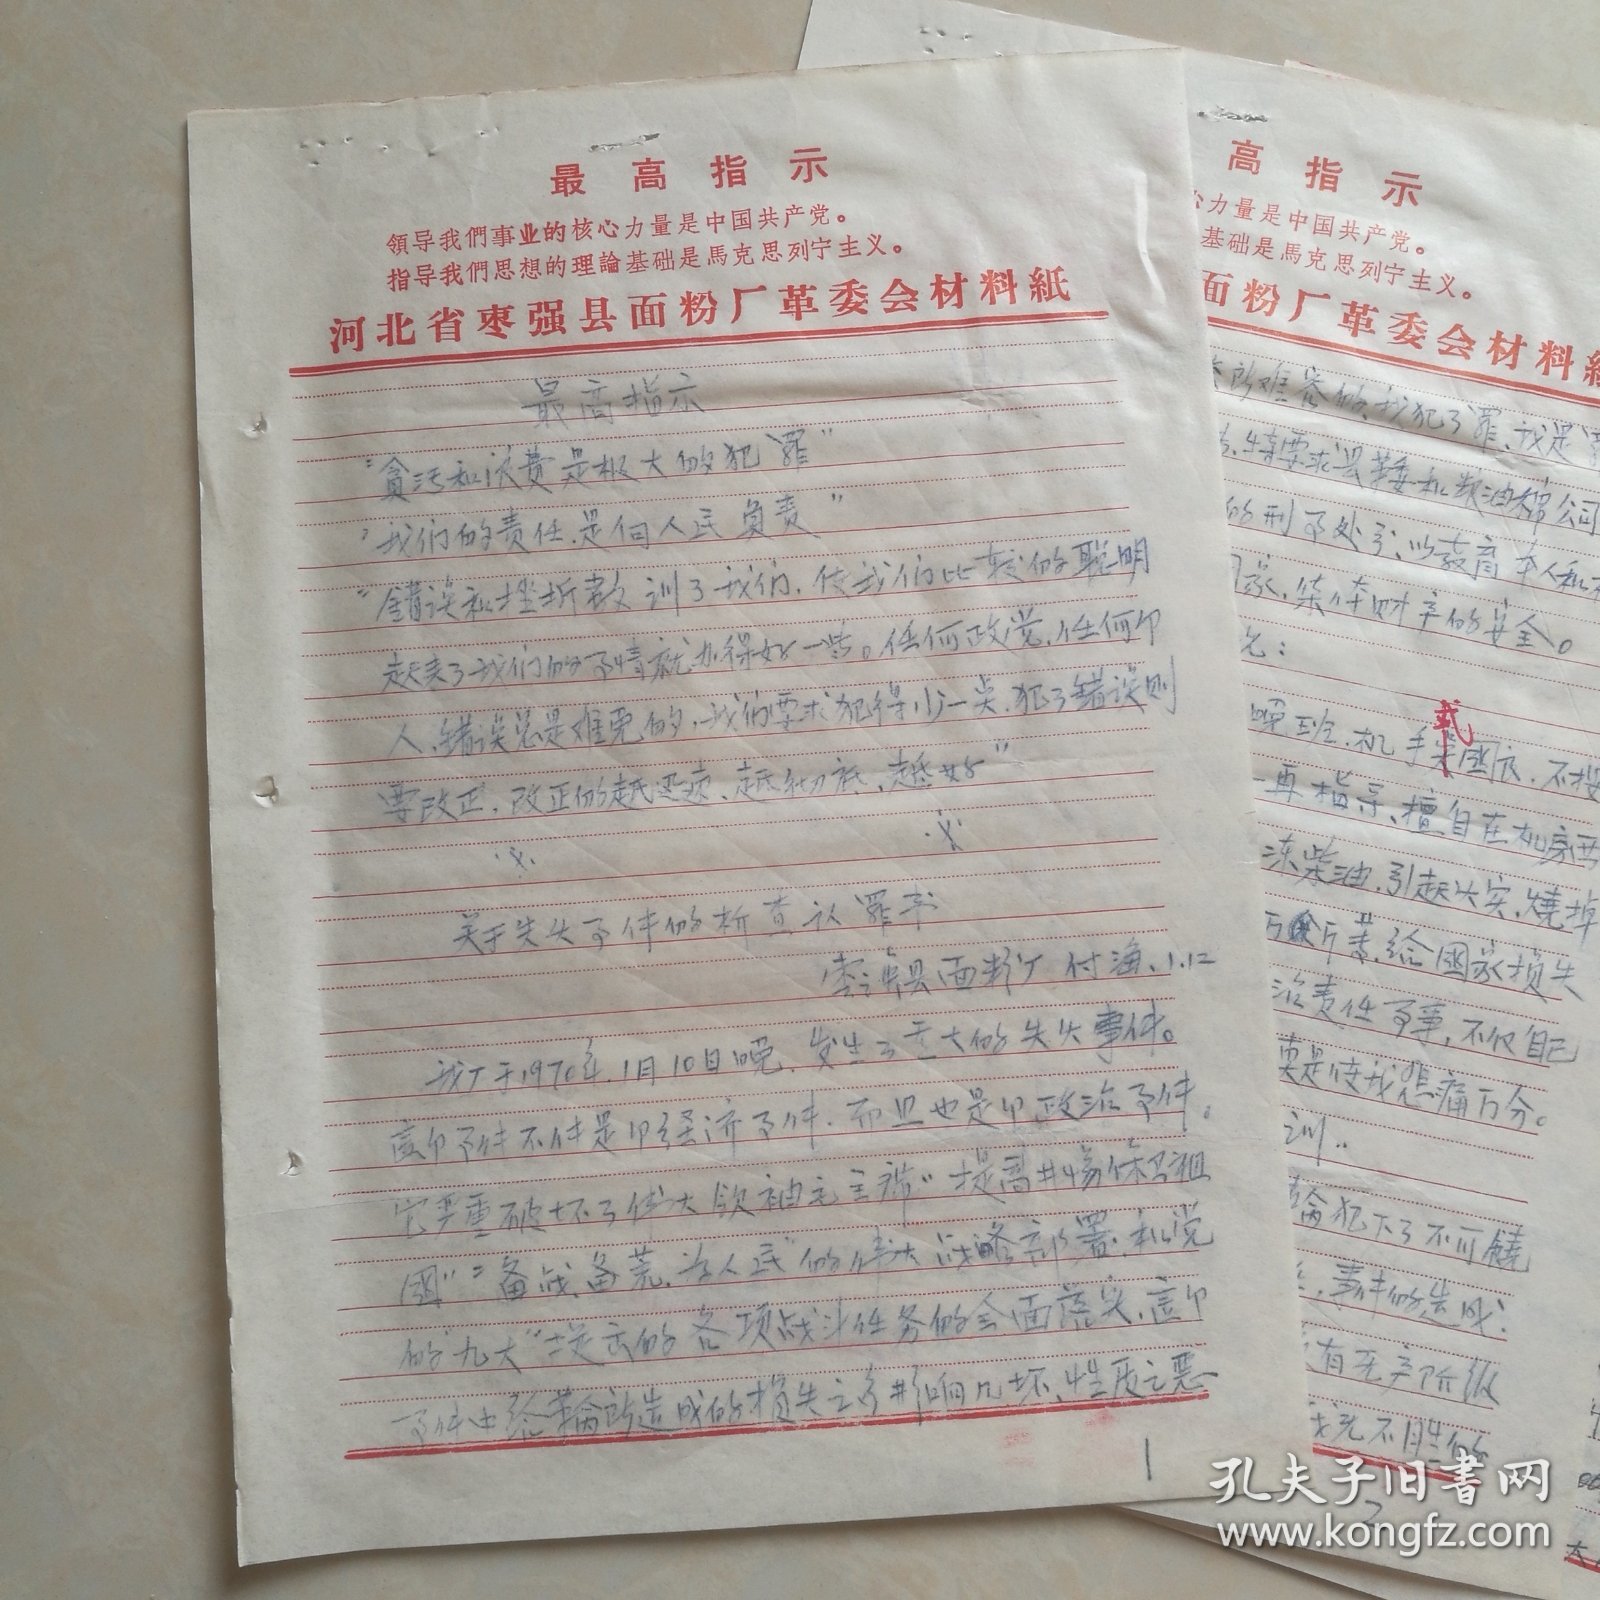 最高指示
領导我們事业的核心力量是中国共产党。
指导我們思想的理論基础是馬克思列宁主义。
河北省枣强县面粉厂革委会材料紙
最高指示
"貪污和浪费是极大的犯罪"
"我们的责任是向人民负责"
"错误和挫折教训了我们,使我们比较的聪明
起来了我们的事情就办得好一些。任何政党,任何个
人,错误总是难免的,我们要求犯得少一点,犯了错误则
要改正,改正的越迅速,越彻底,越好"
关于失火事件的检查认罪书
枣强县面粉厂 付海 1.12
我厂于1970年1月10日晚,发生了重大的失火事件。
这个事件不但是个经济事件,而且也是个政治事件。
它严重破坏了伟大领袖毛主席"提高警惕保卫祖
國""备战、备荒、为人民"的伟大战略部署和党
的"九大"提出的各项战斗任务的全面落实,这个
事件
所造成的损失之多影响之坏、性质之恶
1
高指示
力量是中国共产党。
基础是馬克思列宁主义。
面粉厂革委会材料紙
所难容的,我犯了罪,我是
特要求县革委和粮油棉公司
的刑事处分,以教育本人和
集体财产的安全。
晚班,机手
弍
國辰,不按
一再指导,擅自在机房西
冻柴油,引起火灾,烧掉
万
斤
给國家损失
治责任事
,不仅自己
更是使我悲痛万分。
训..
犯下了不可饒
事件的造成:
有无产阶级
我完不成的
2
孔夫子旧书网
www.kongfz.com